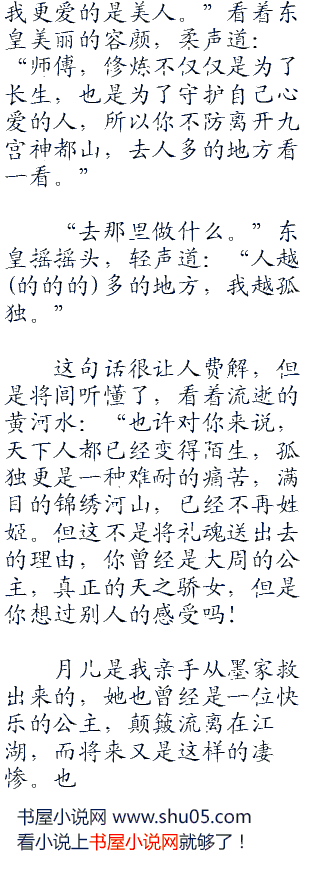 我更爱的是美人。”看着东
皇美丽的容颜，柔声道：
“师傅，修炼不仅仅是为了
长生，也是为了守护自己心
爱的人，所以你不防离开九
宫神都山，去人多的地方看
一看。”
“去那里做什么。”东
皇摇摇头，轻声道：“人越
(的的的)多的地方，我越孤
独。”
这句话很让人费解，但
是将闾听懂了，看着流逝的
黄河水：“也许对你来说，
天下人都已经变得陌生，孤
独更是一种难耐的痛苦，满
目的锦绣河山，已经不再姓
姬。但这不是将礼魂送出去
的理由，你曾经是大周的公
主，真正的天之骄女，但是
你想过别人的感受吗！
月儿是我亲手从墨家救
出来的，她也曾经是一位快
乐的公主，颠簸流离在江
湖，而将来又是这样的凄
惨。也
书屋小说网 www.shu05.com
看小说上书屋小说网就够了！